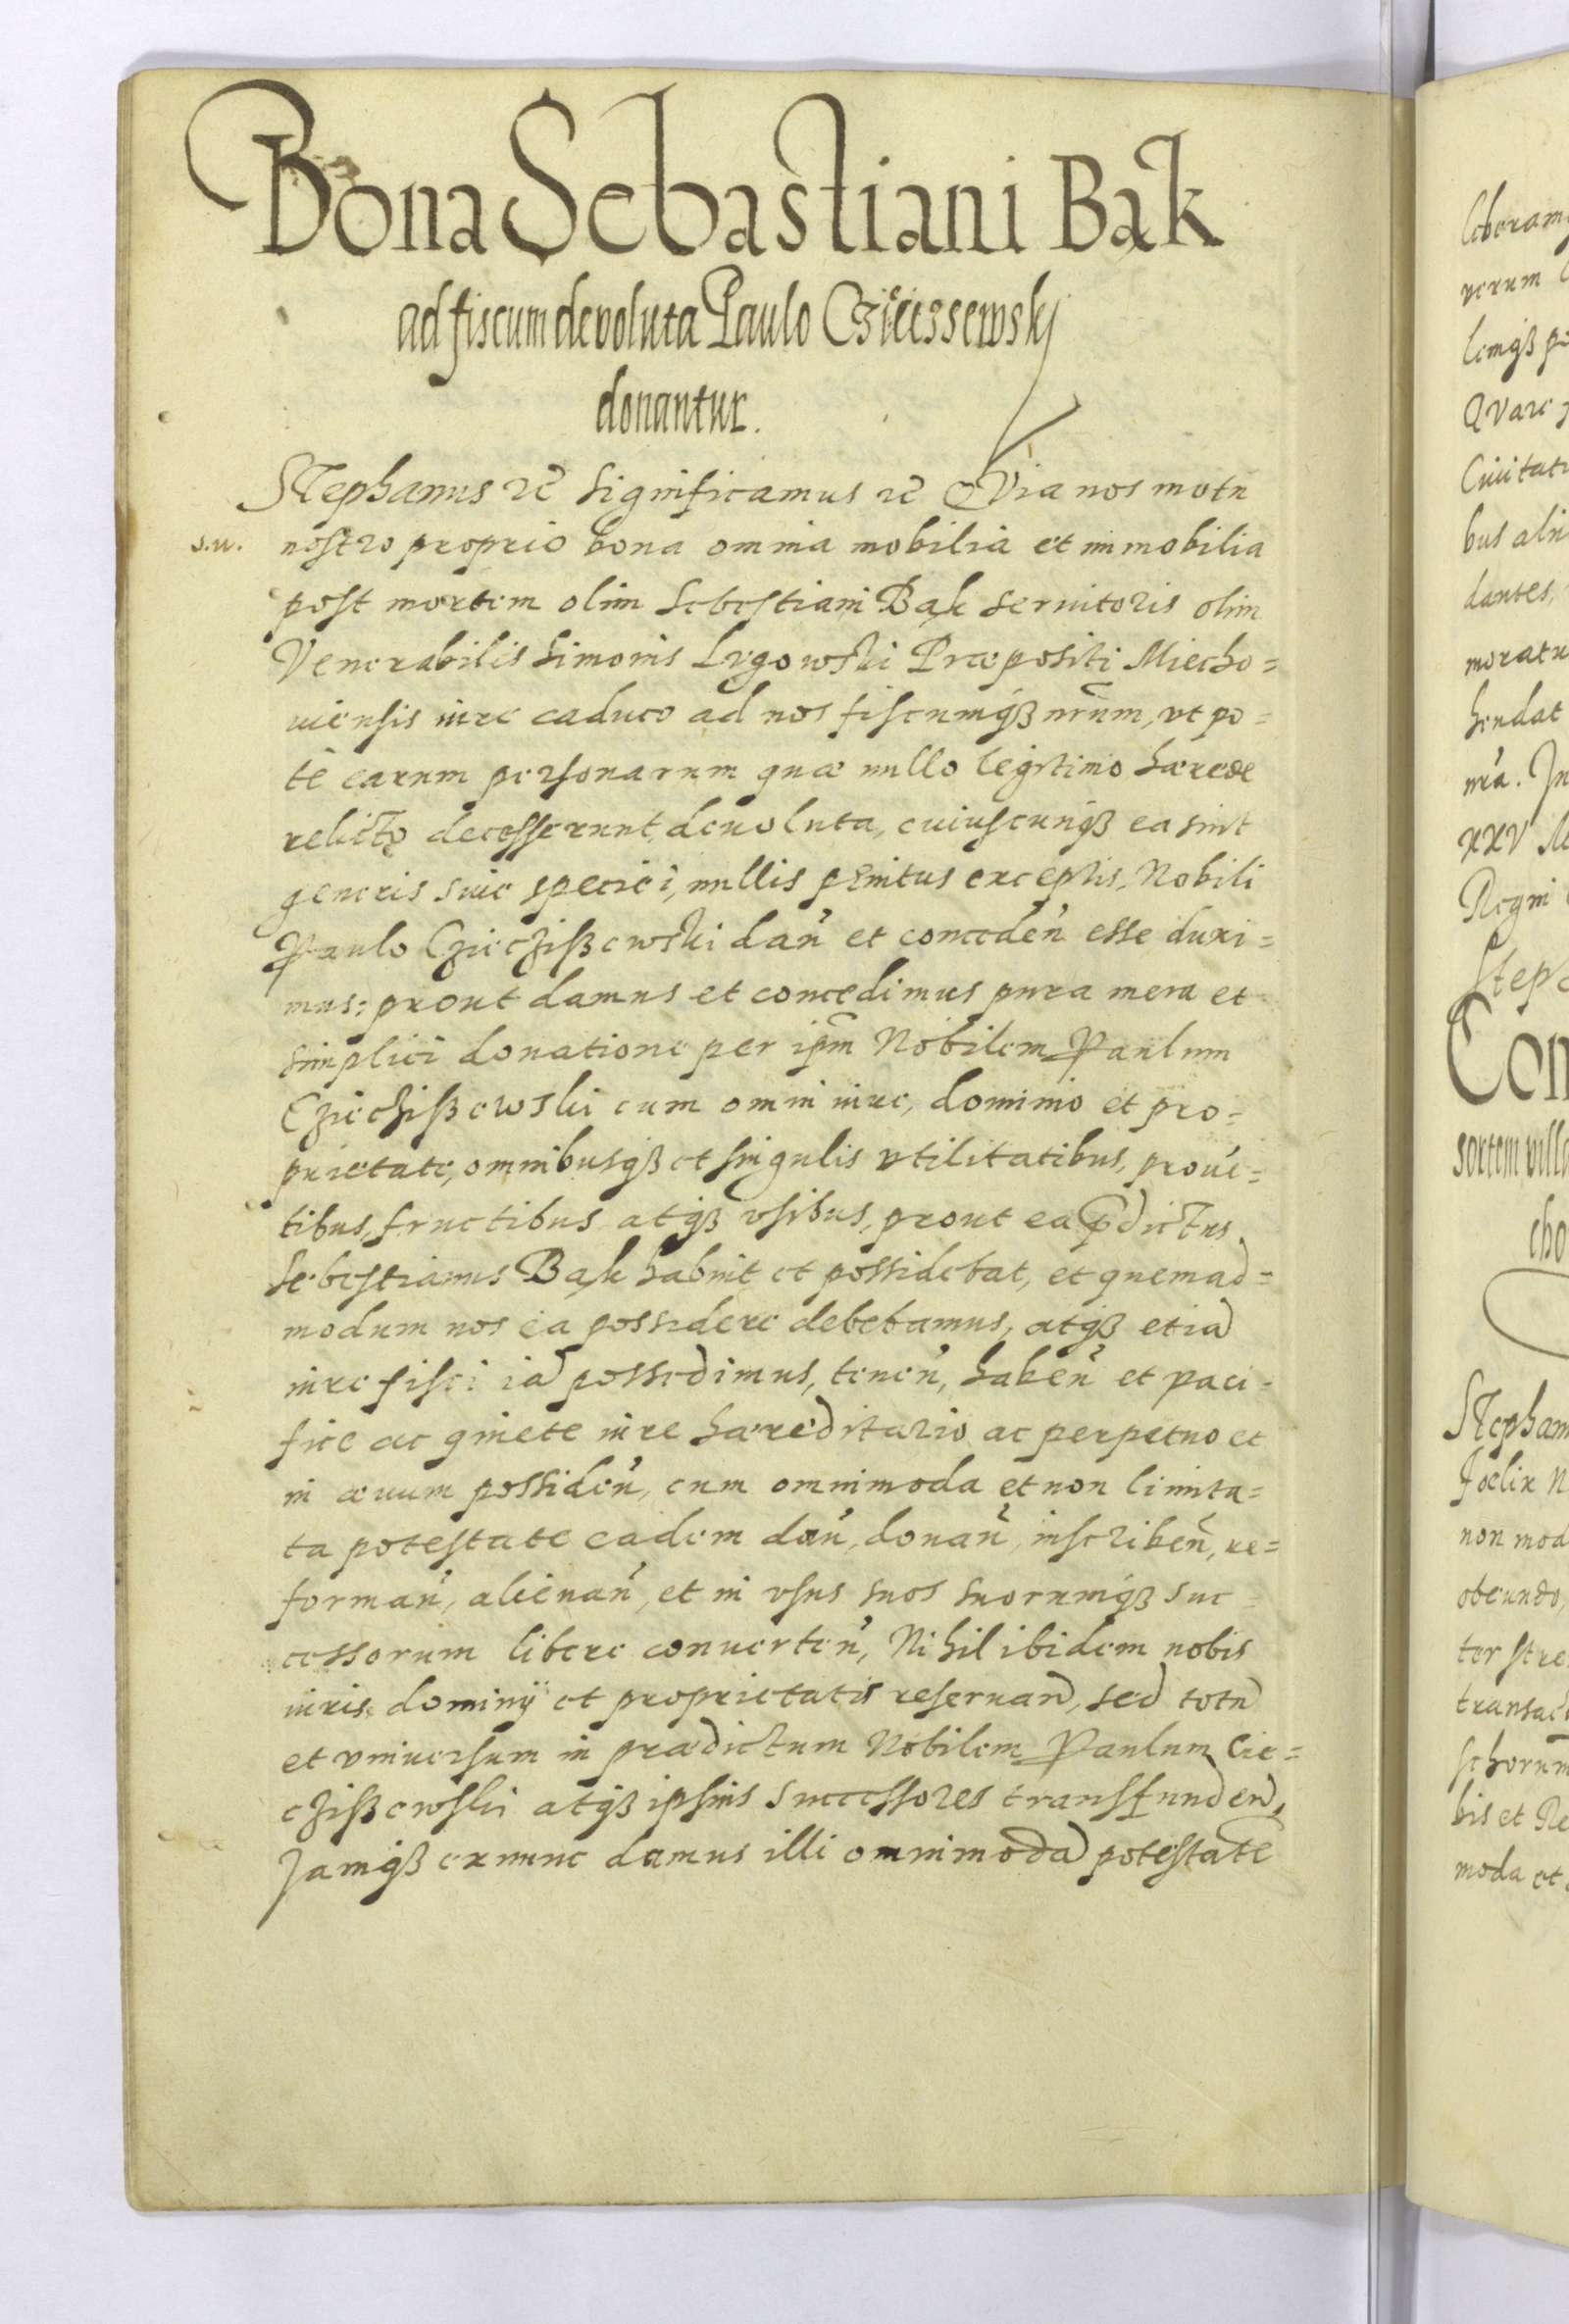 Bona Sebastiani Bąk
ad fiscum devoluta Paulo
donantur.
Stephanus rc̄ Significamus rc̄ QVia nos motu
s.w. nostro proprio bona omnia mobilia et immobilia
post mortem olim Sebestiani Bąk seruitoris olim
Venerabilis Simonis Lvgowski Præpositi Miecho=
uiensis iure caduco ad nos fiscumqß nr̃um, vt po=
te earum personarum quæ nullo legitimo hærede
relicto decesserunt devoluta, cuiuscunqß ea sint
generis siue speciei, nullis penitus exceptis, Nobili
Paulo Czieczißewski dañ et conceden̄ esse duxi=
mus: prout damus et concedimus pura mera et
simplici donatione per ipm̄ Nobilem Paulum
Czieczißewski cum omni iure, dominio et pro=
prietate, omnibusqß et singulis vtilitatibus, prouē=
tibus, fructibus atqß vsibus, prout ea p̄dictus
Sebestianus Bąk habuit et possidebat, et quemad=
modum nos ea possidere debebamus, atqß etiā
iure fisci iā possedimus, teneñ, habeñ et paci=
fice ac quiete iure hæreditario ac perpetuo et
in æuum possideñ, cum omnimoda et non limita=
ta potestate eadem dañ, donañ, inscribeñ, re=
formañ, alienañ, et in vsus suos suorumqß suc=
cessorum libere conuerteñ, Nihil ibidem nobis
iuris dominÿ et proprietatis reseruan̄, sed totū
et vniuersum in prædictum Nobilem Paulum Cie=
czißewski atqß ipsius successores transfunden̄,
Jamqß ex nunc damus illi omnimodā potestatē
verum
QVare
Ciuitati
bus
dantes,
moratu
hendat
nr̃a. In
XXV
Regni
Step
Con
sortem villa
cho
Stephan
Foelix N
non mod
obeundo,
ter stre
transac
bis et Re
moda et